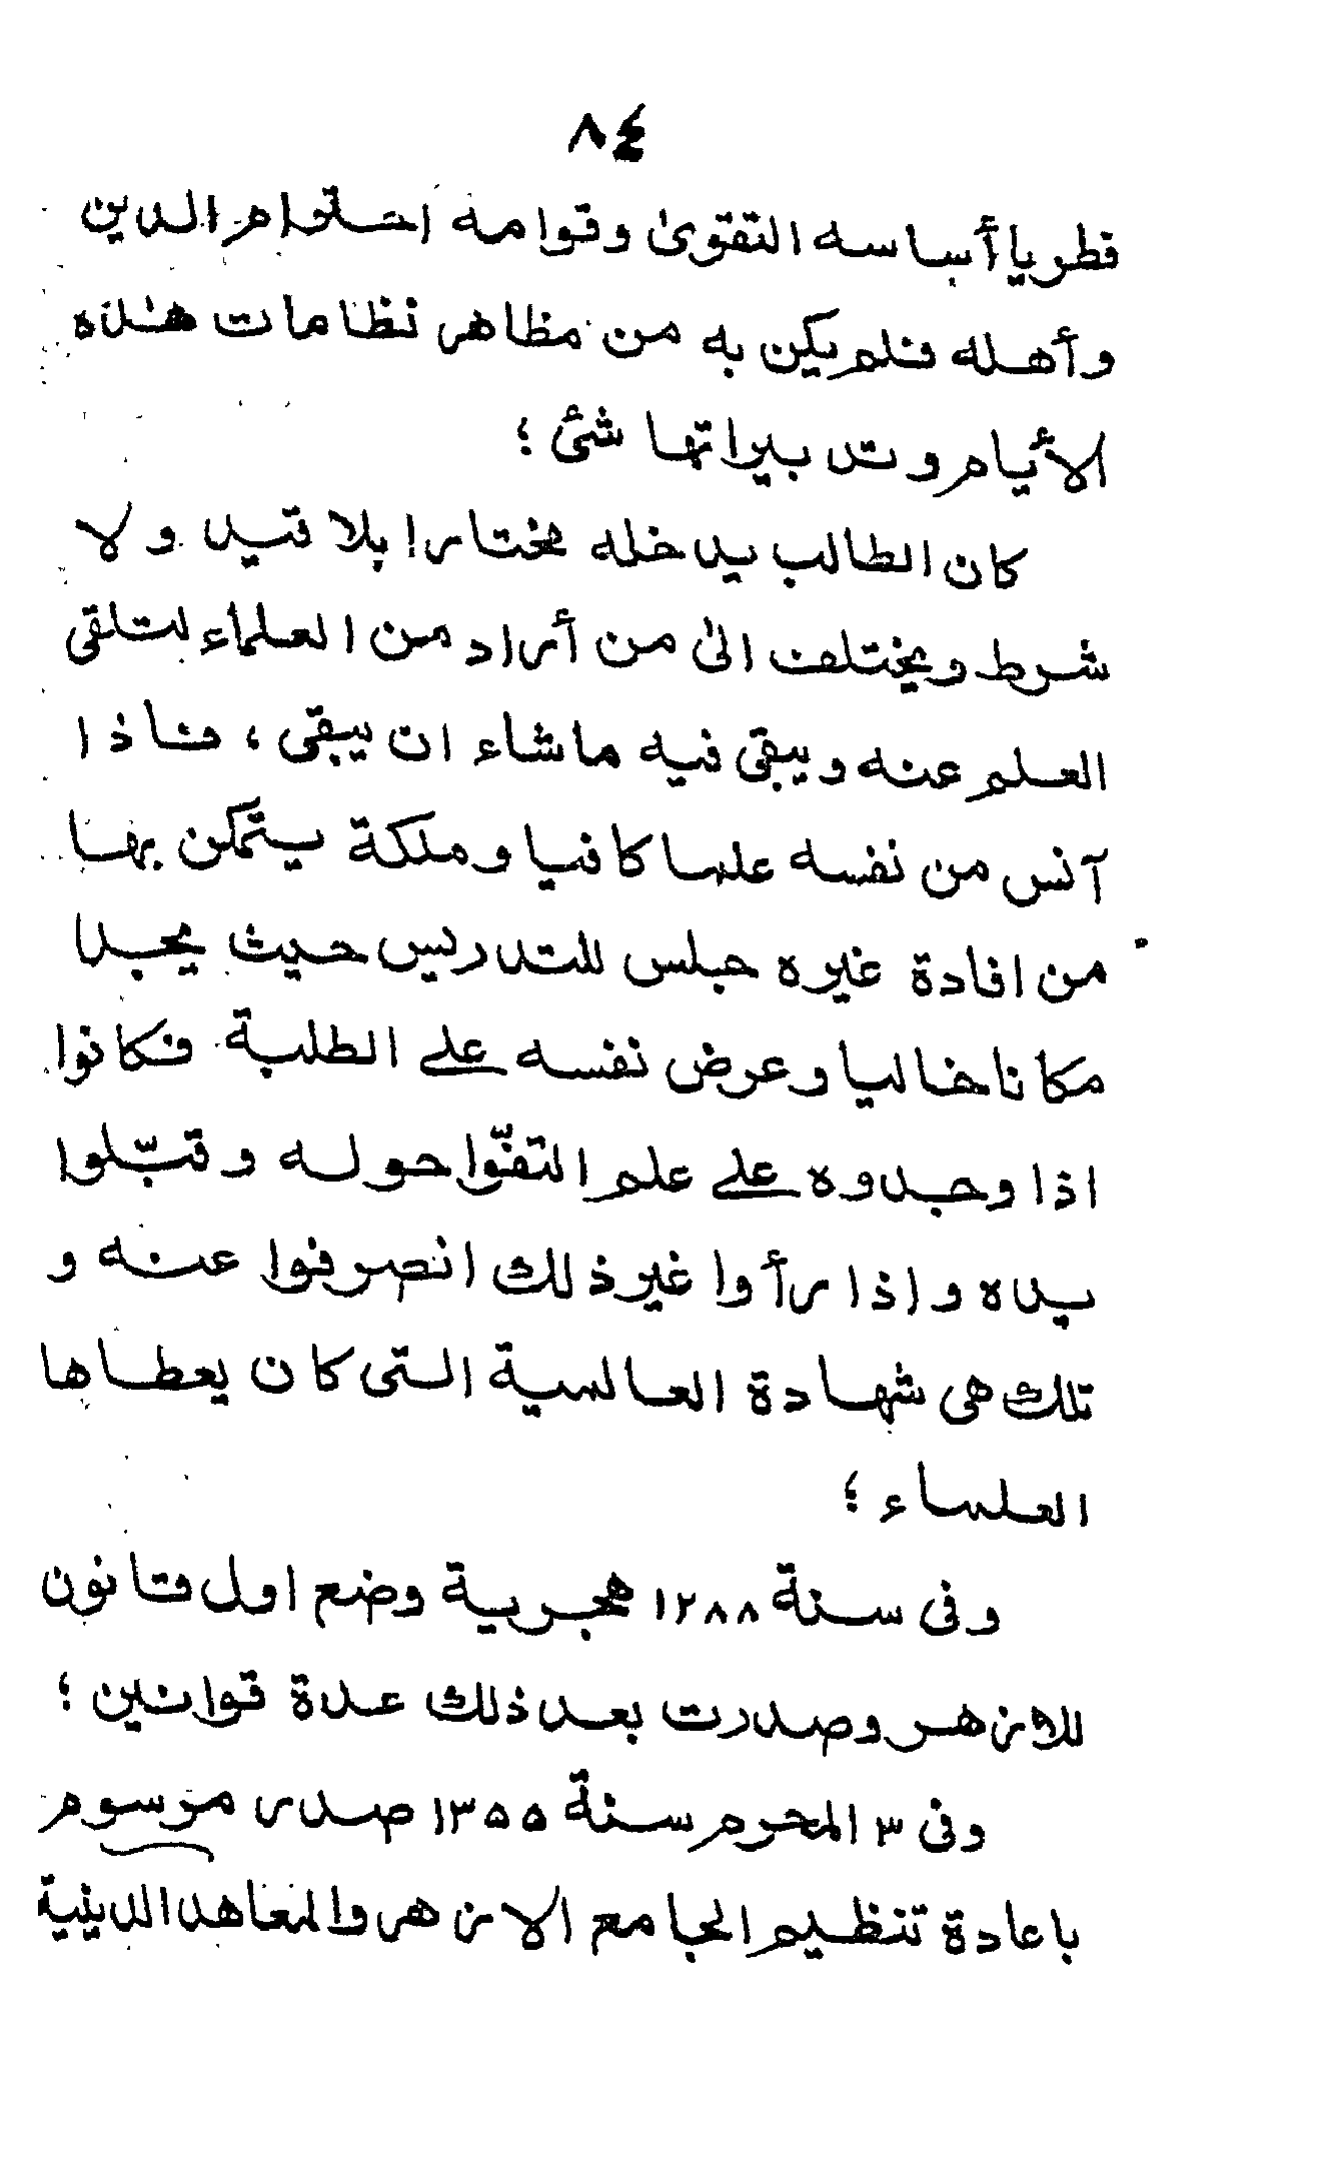 ٨٤
فطريا أساسه التقوىٰ وقوامه احترام الدين
وأهله فلم يكن به من مظاهر نظامات هٰذه
الأيام وتدبيراتها شئ ؛
كان الطالب يدخله مختارا بلا قيد ولا
شرط ويختلف الىٰ من أراد من العلماء ليتلقى
العلم عنه ويبقى فيه ماشاء ان يبقى ، فاذا
آنس من نفسه علما كافيا وملكة يتمكن بها
من افادة غيره جلس للتدريس حيث يجد
مكانا خاليا وعرض نفسه علے الطلبة فكانوا
اذا وجدوه علے علم التفّوا حوله وقبّلوا
يده واذا رأوا غير ذلك انصرفوا عنه و
تلك هى شهادة العالمية التى كان يعطاها
العلماء ؛
وفى سنة ١٢٨٨ هجرية وضع اول قانون
للازهر وصدرت بعد ذلك عدة قوانين ؛
وفى ٣ المحرم سنة ١٣٥٥ صدر مرسوم
باعادة تنظيم الجامع الازهر والمعاهد الدينية